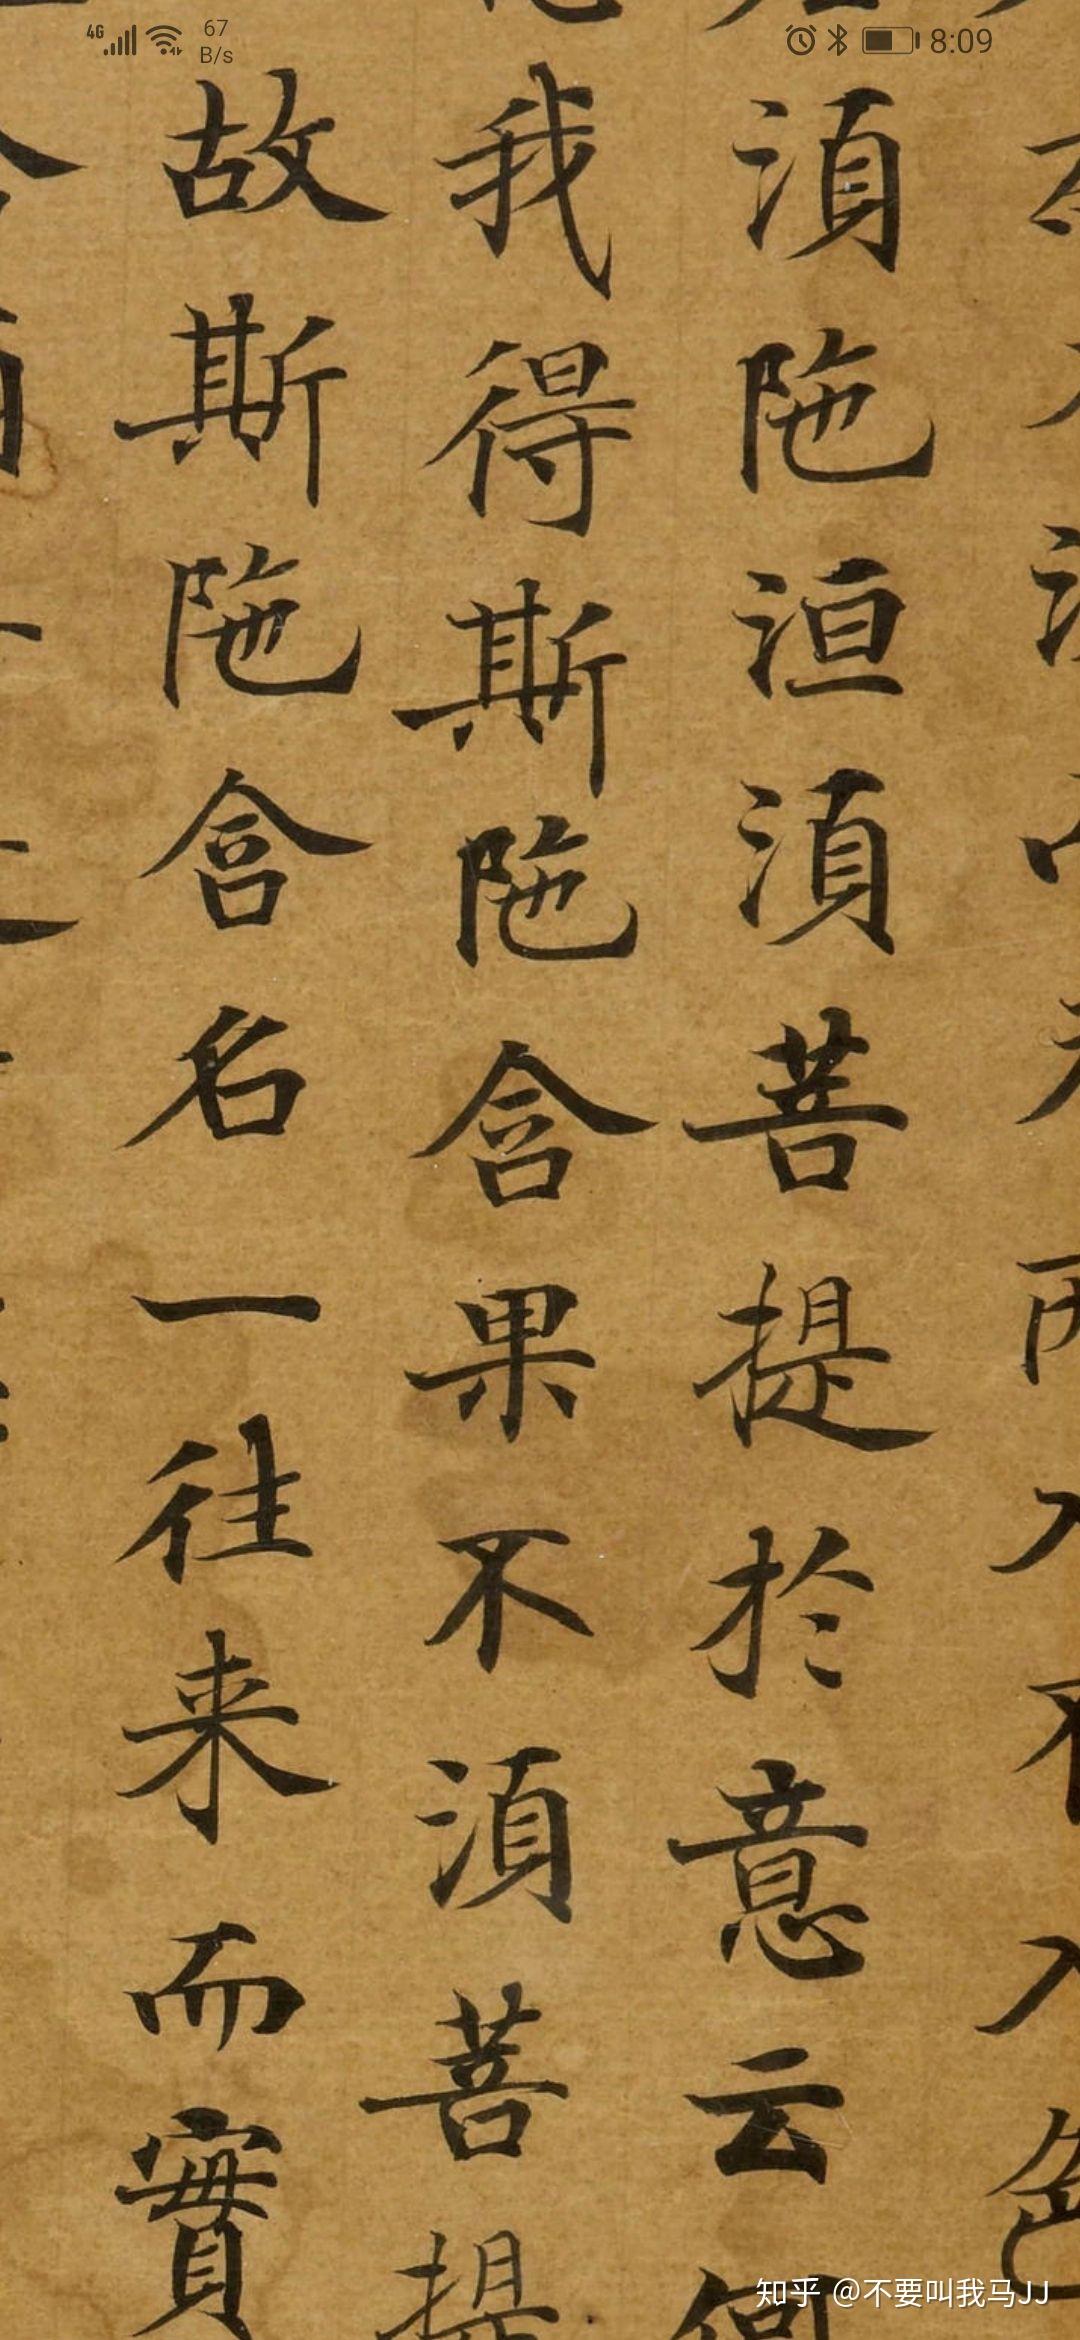 4G 67 B/s 8:09
入不入色
湏陁洹湏菩提扵意云何
我得斯陁含果不湏菩提
故斯陁含名一往来而實
知乎 @不要叫我马JJ